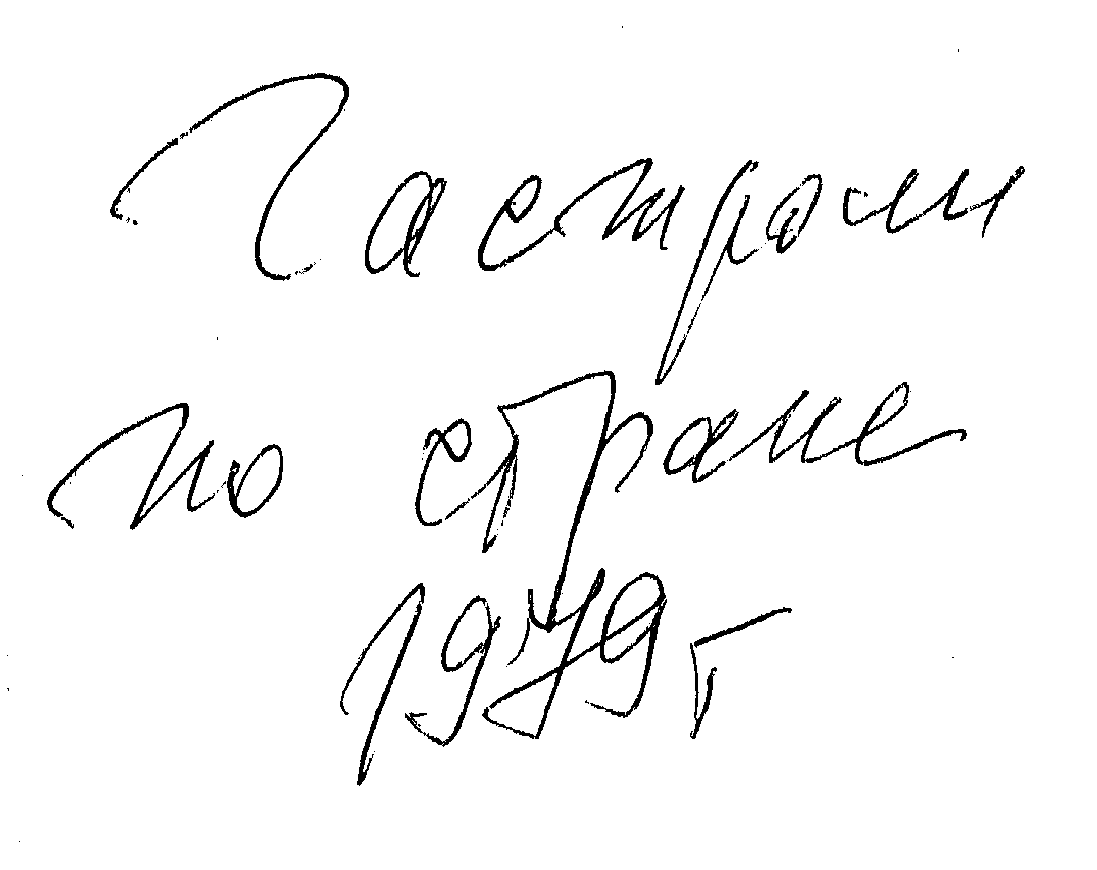 Гастроли
по стране
1979 г